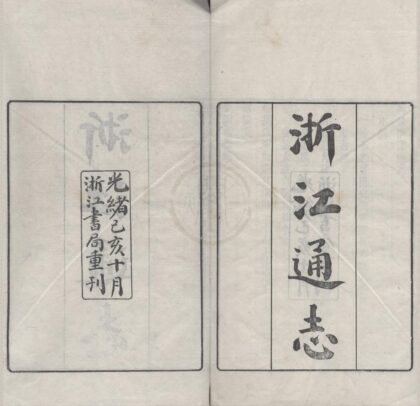 浙江通志
光緒己亥十月
浙江書局重刊